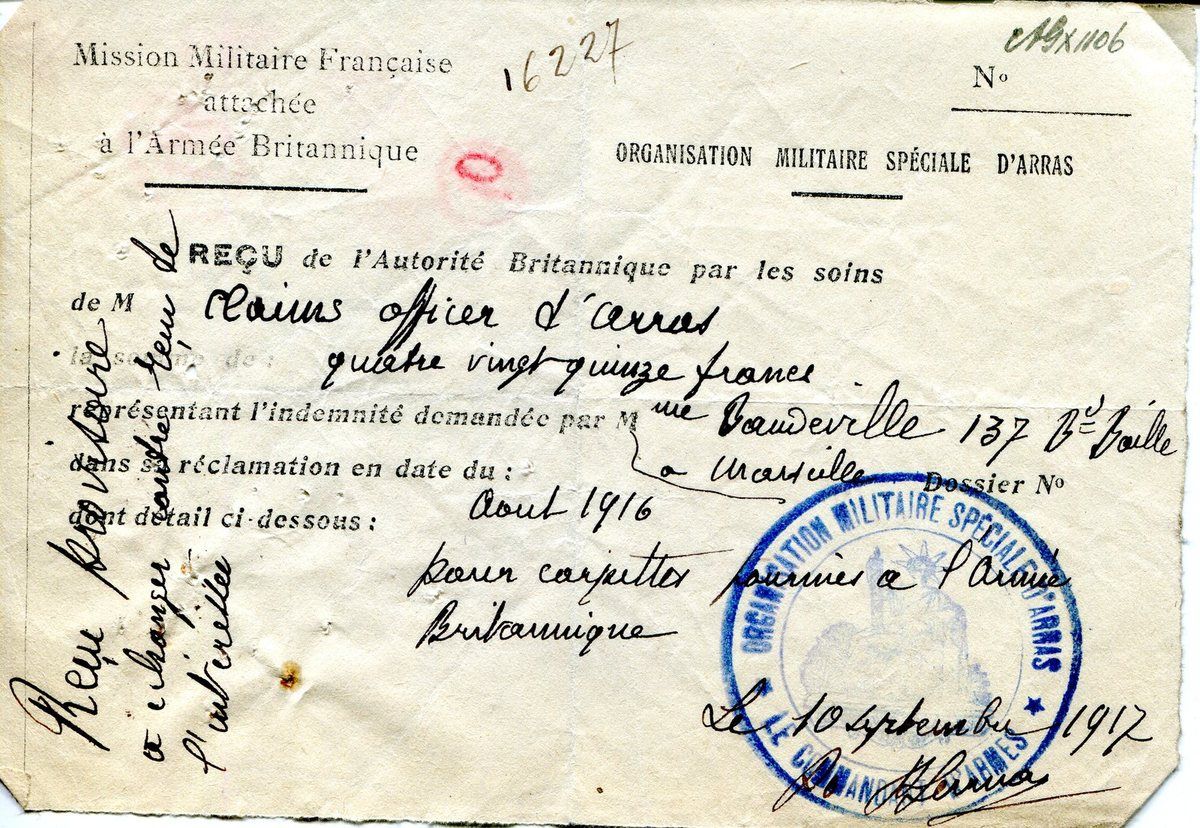 Mission Militaire Française
attachée
à l'Armée Britannique
16227
Nº
ORGANISATION MILITAIRE SPÉCIALE D'ARRAS
0
REÇU de l'Autorité Britannique par les soins
de M Claims officer d'Arras
la somme de : quatre vingt quinze francs
représentant l'indemnité demandée par M me Vaudeville 137 Bd Baille
à Marseille
dans sa réclamation en date du :
Dossier Nº
Aout 1916
dont détail ci-dessous :
pour carpettes fournies a l'Armée
Britannique
Le 10 septembre 1917
ORGANISATION MILITAIRE SPÉCIALE D'ARRAS
LE COMMANDANT D'ARMES
Reçu provisoire
a échanger contre reçu de
l'intéréssée